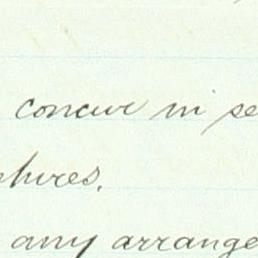 concur in se
tures.
any arrange